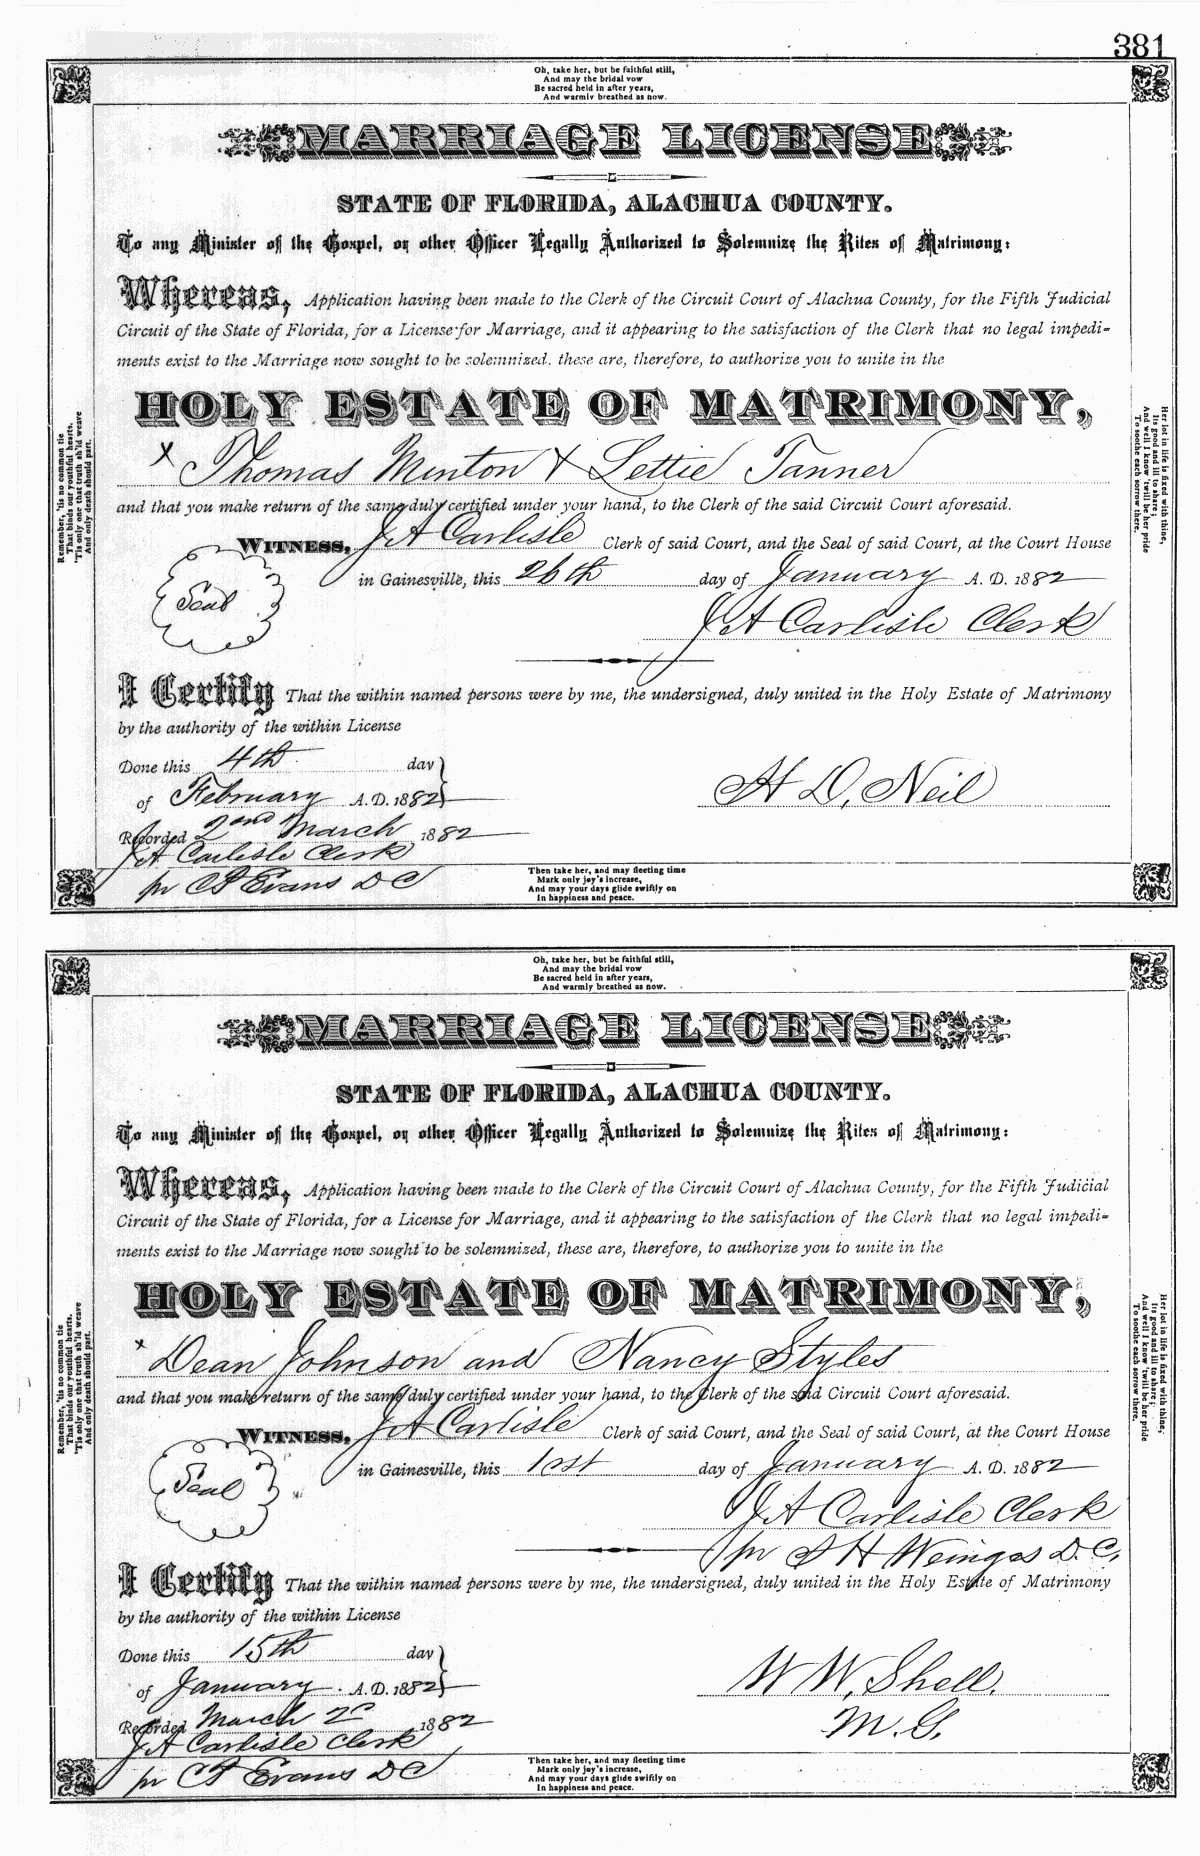 381
Oh, take her, but be faithful still,
And may the bridal vow
Be sacred held in after years,
And warmly breathed as now.
MARRIAGE LICENSE
STATE OF FLORIDA, ALACHUA COUNTY.
To any Minister of the Gospel, or other Officer Legally Authorized to Solemnize the Rites of Matrimony:
Whereas, Application having been made to the Clerk of the Circuit Court of Alachua County, for the Fifth Judicial
Circuit of the State of Florida, for a License for Marriage, and it appearing to the satisfaction of the Clerk that no legal impedi-
ments exist to the Marriage now sought to be solemnized, these are, therefore, to authorize you to unite in the
HOLY ESTATE OF MATRIMONY,
x Thomas Minton & Lettie Tanner
and that you make return of the same duly certified under your hand, to the Clerk of the said Circuit Court aforesaid.
WITNESS, J A Carlisle Clerk of said Court, and the Seal of said Court, at the Court House
Seal
in Gainesville, this 26th day of January A. D. 1882
J A Carlisle Clerk
I Certify That the within named persons were by me, the undersigned, duly united in the Holy Estate of Matrimony
by the authority of the within License
Done this 4th day
of February A. D. 1882
H D, Neil
Recorded 2nd March 1882
J A Carlisle Clerk
pr C P Evans D C
Remember, 'tis no common tie
That binds our youthful hearts,
'Tis only one that truth sh'ld weave
And only death should part.
Her lot in life is fixed with thine,
Its good and ill to share;
And well I know 'twill be her pride
To soothe each sorrow there.
Then take her, and may fleeting time
Mark only joy's increase,
And may your days glide swiftly on
In happiness and peace.
Oh, take her, but be faithful still,
And may the bridal vow
Be sacred held in after years,
And warmly breathed as now.
MARRIAGE LICENSE
STATE OF FLORIDA, ALACHUA COUNTY.
To any Minister of the Gospel, or other Officer Legally Authorized to Solemnize the Rites of Matrimony:
Whereas, Application having been made to the Clerk of the Circuit Court of Alachua County, for the Fifth Judicial
Circuit of the State of Florida, for a License for Marriage, and it appearing to the satisfaction of the Clerk that no legal impedi-
ments exist to the Marriage now sought to be solemnized, these are, therefore, to authorize you to unite in the
HOLY ESTATE OF MATRIMONY,
x Dean Johnson and Nancy Styles
and that you make return of the same duly certified under your hand, to the Clerk of the said Circuit Court aforesaid.
WITNESS, J A Carlisle Clerk of said Court, and the Seal of said Court, at the Court House
Seal
in Gainesville, this 1st day of January A. D. 1882
J A Carlisle Clerk
pr H D. C,
I Certify That the within named persons were by me, the undersigned, duly united in the Holy Estate of Matrimony
by the authority of the within License
Done this 15th day
of January A. D. 1882
W W, Shell.
M. G.
Recorded March 2d 1882
J A Carlisle Clerk
pr C P Evans D C
Remember, 'tis no common tie
That binds our youthful hearts,
'Tis only one that truth sh'ld weave
And only death should part.
Her lot in life is fixed with thine,
Its good and ill to share;
And well I know 'twill be her pride
To soothe each sorrow there.
Then take her, and may fleeting time
Mark only joy's increase,
And may your days glide swiftly on
In happiness and peace.